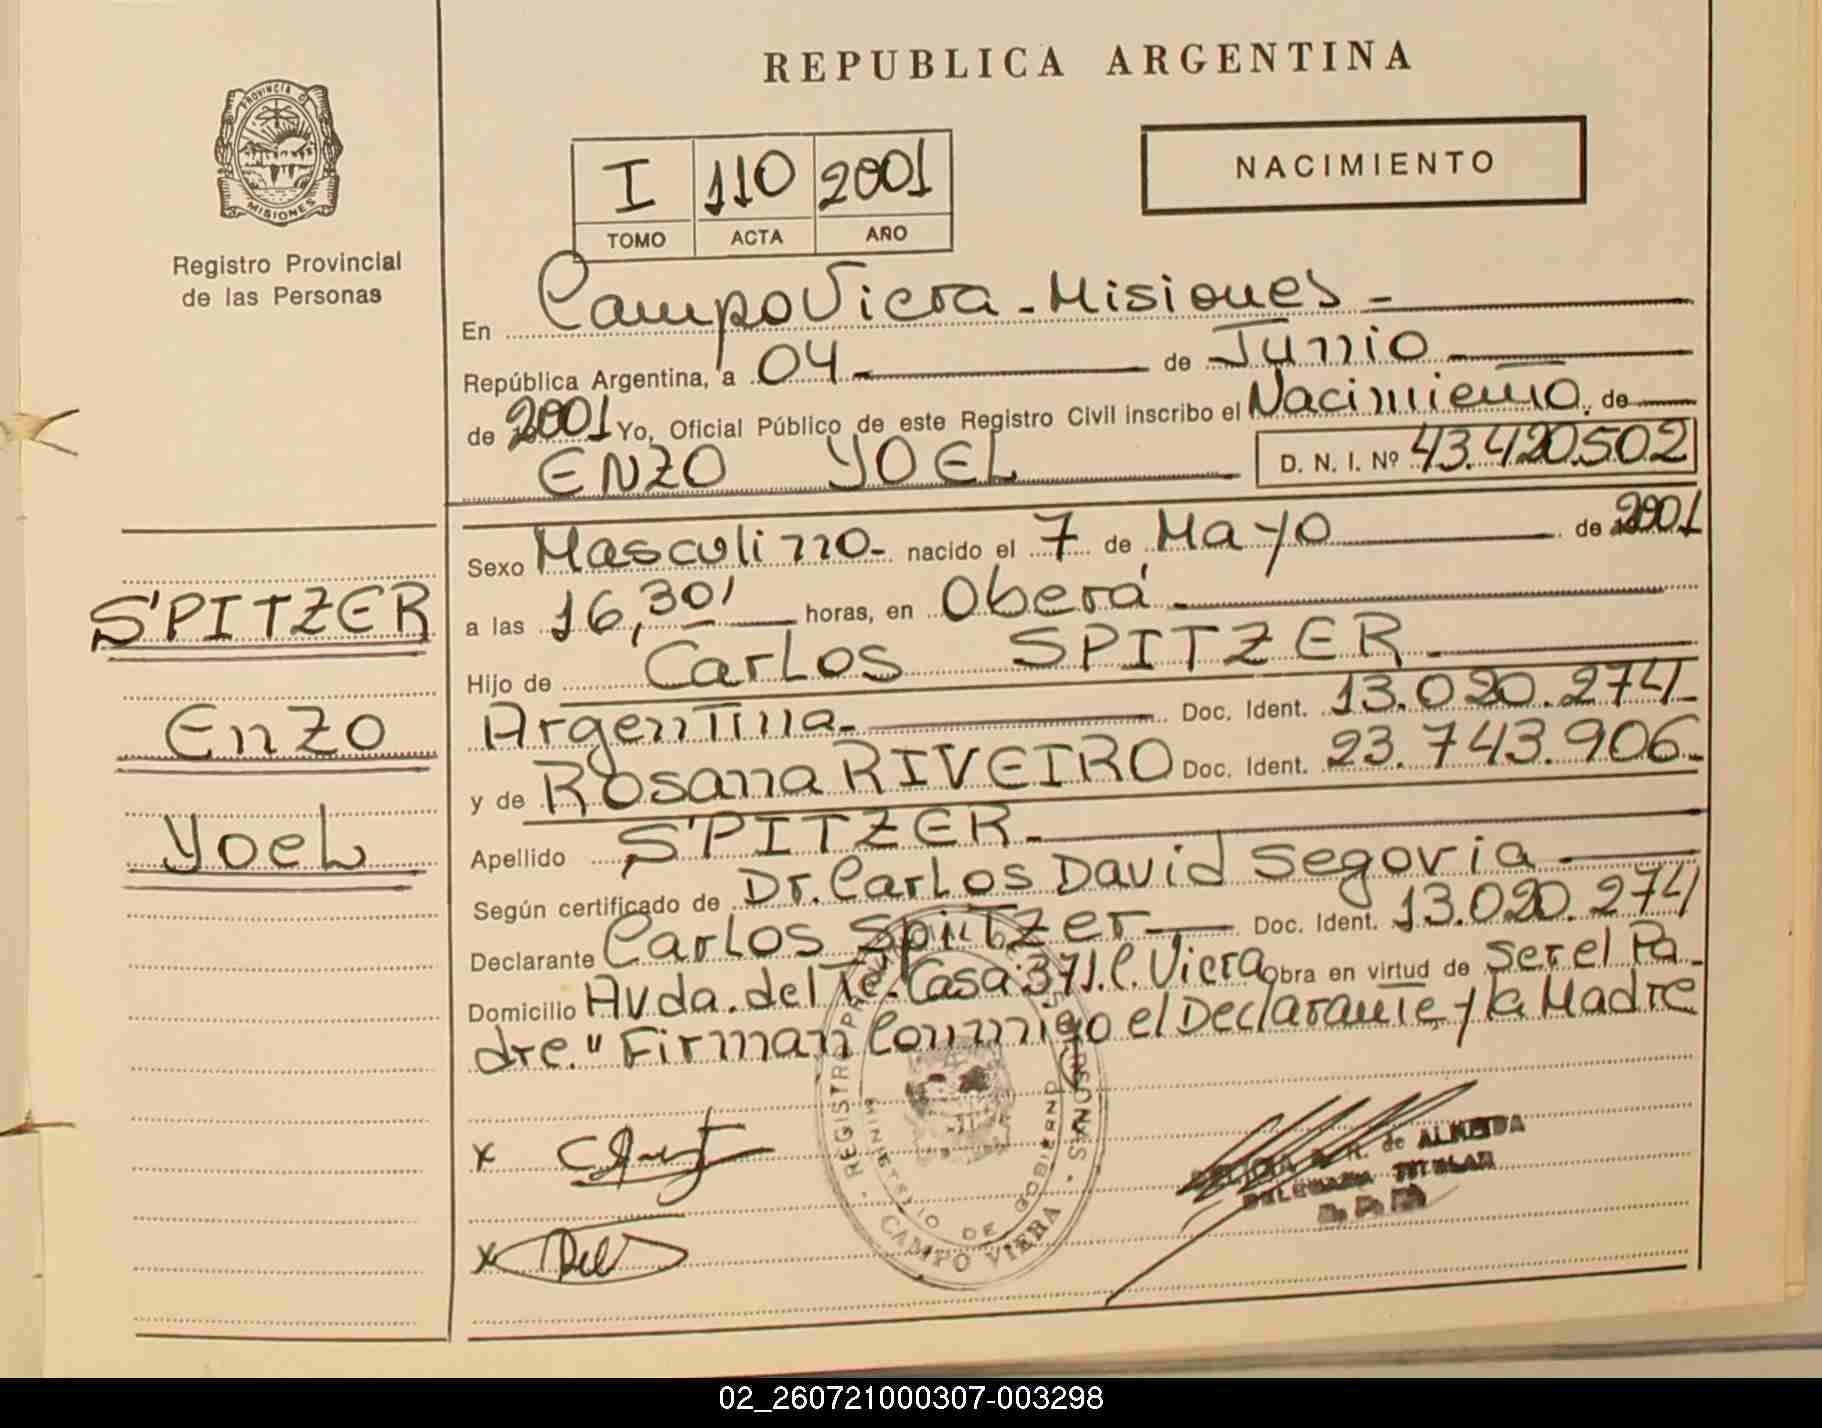 REPUBLICA ARGENTINA
PROVINCIA DE
MISIONES
Registro Provincial
de las Personas
I 110 2001
TOMO ACTA AÑO
NACIMIENTO
En Campo Viera - Misiones -
República Argentina, a 04 de Junio
de 2001 Yo, Oficial Público de este Registro Civil inscribo el Nacimiento de
ENZO YOEL D. N. I. Nº 43.420.502
Sexo Masculino nacido el 7 de Mayo de 2001
a las 16,30' horas, en Oberá
Hijo de Carlos SPITZER
Argentina Doc. Ident. 13.020.274
y de Rosana RIVEIRO Doc. Ident. 23.743.906
Apellido SPITZER
Según certificado de Dr. Carlos David Segovia
Declarante Carlos Spitzer Doc. Ident. 13.020.274
Domicilio Avda. del Té. Casa 371. C. Viera Obra en virtud de ser el Pa-
dre." Firman Conmigo el Declarante y la Madre
SPITZER
Enzo
Yoel
x
x
MINISTERIO DE GOBIERNO
CAMPO VIERA
de ALMEIDA
DELEGADA TITULAR
02_260721000307-003298